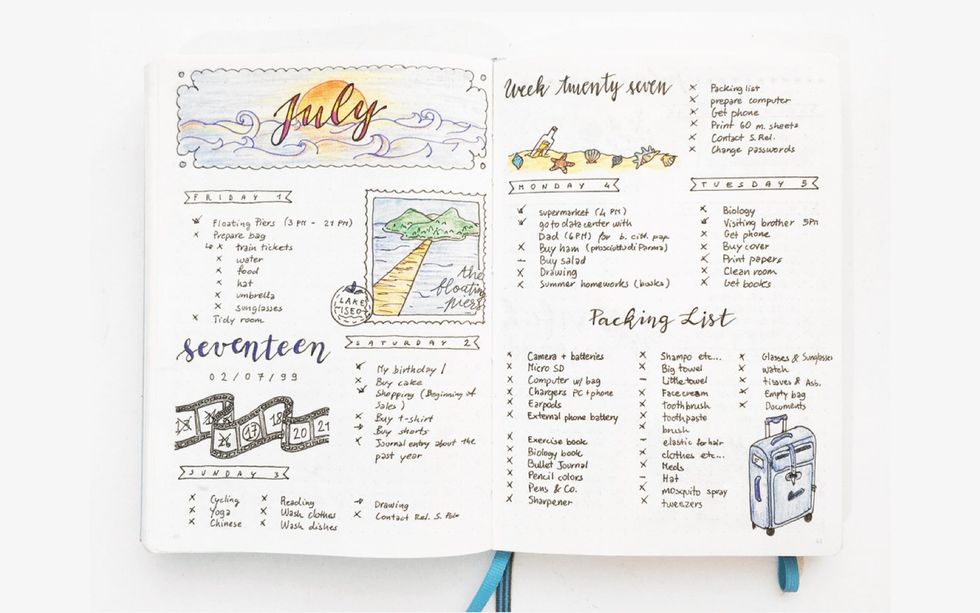 July
FRIDAY 1
Floating Piers (3 PM - 21 PM)
Prepare bag
train tickets
water
food
hat
umbrella
sunglasses
Tidy room
the
floating
piers
LAKE
ISEO
seventeen
02/07/99
17
18
20
21
SATURDAY 2
My birthday!
Buy cake
Shopping (Beginning of
Sales)
Buy t-shirt
Buy shorts
Journal entry about the
past year
SUNDAY 3
Cycling
Yoga
Chinese
Reading
Wash clothes
Wash dishes
Drawing
Contact Rel. S. Polo
Week twenty seven
Packing list
prepare computer
Get phone
Print 60 m. sheets
Contact S. Rel.
Change passwords
MONDAY 4
supermarket (4 PM)
go to data center with
Dad (6 PM) for b. citt. pap.
Buy ham (prosciutto di Parma)
Buy salad
Drawing
Summer homeworks (books)
TUESDAY 5
Biology
Visiting brother 5PM
Get phone
Buy cover
Print papers
Clean room
Get books
Packing List
Camera + batteries
Micro SD
Computer w/ bag
Chargers PC + phone
Earpods
External phone battery
Exercise book
Biology book
Bullet Journal
Pencil colors
Pens & Co.
Sharpener
Shampo etc...
Big towel
Little towel
Face cream
Toothbrush
toothpaste
brush
elastic for hair
clothes etc...
Meds
Hat
mosquito spray
tweezers
Glasses & Sunglasses
watch
tissues & Ass.
Empty bag
Documents